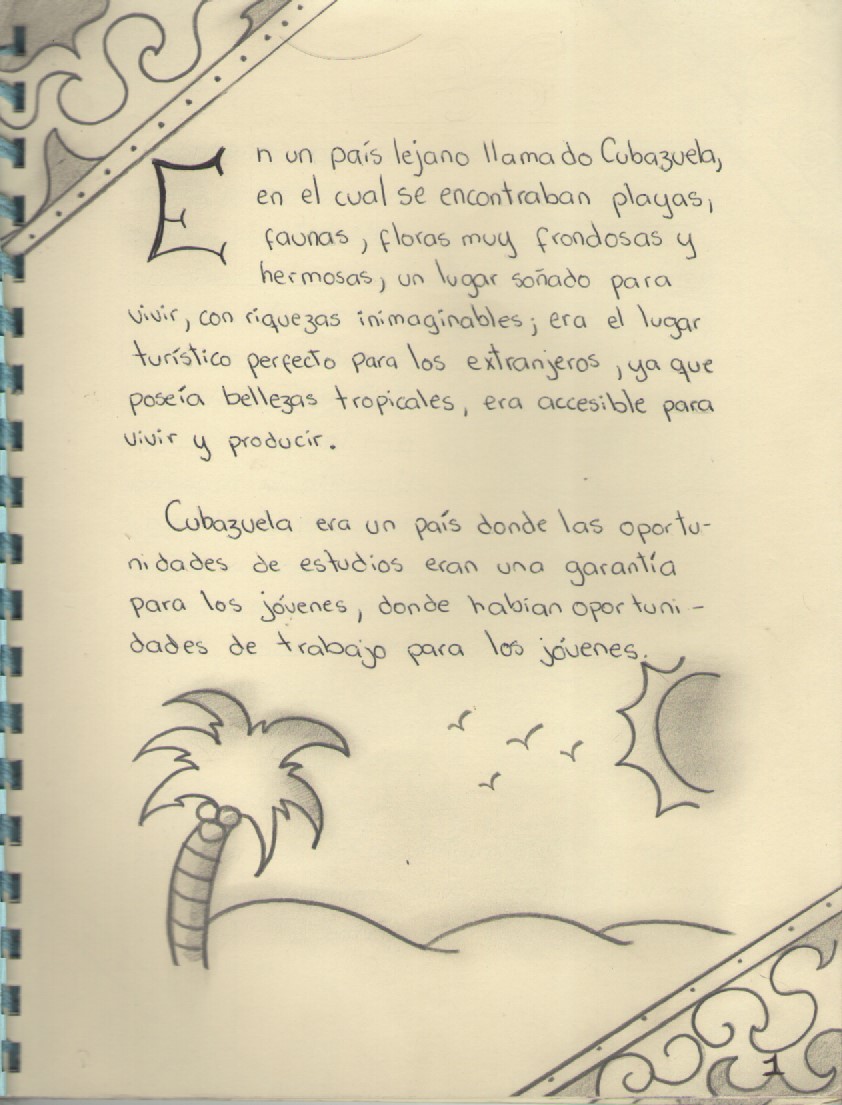 En un país lejano llamado Cubazuela,
en el cual se encontraban playas,
faunas, floras muy frondosas y
hermosas, un lugar soñado para
vivir, con riquezas inimaginables; era el lugar
turístico perfecto para los extranjeros, ya que
poseía bellezas tropicales, era accesible para
vivir y producir.
Cubazuela era un país donde las oportu-
nidades de estudios eran una garantía
para los jóvenes, donde habían oportuni-
dades de trabajo para los jóvenes.
1